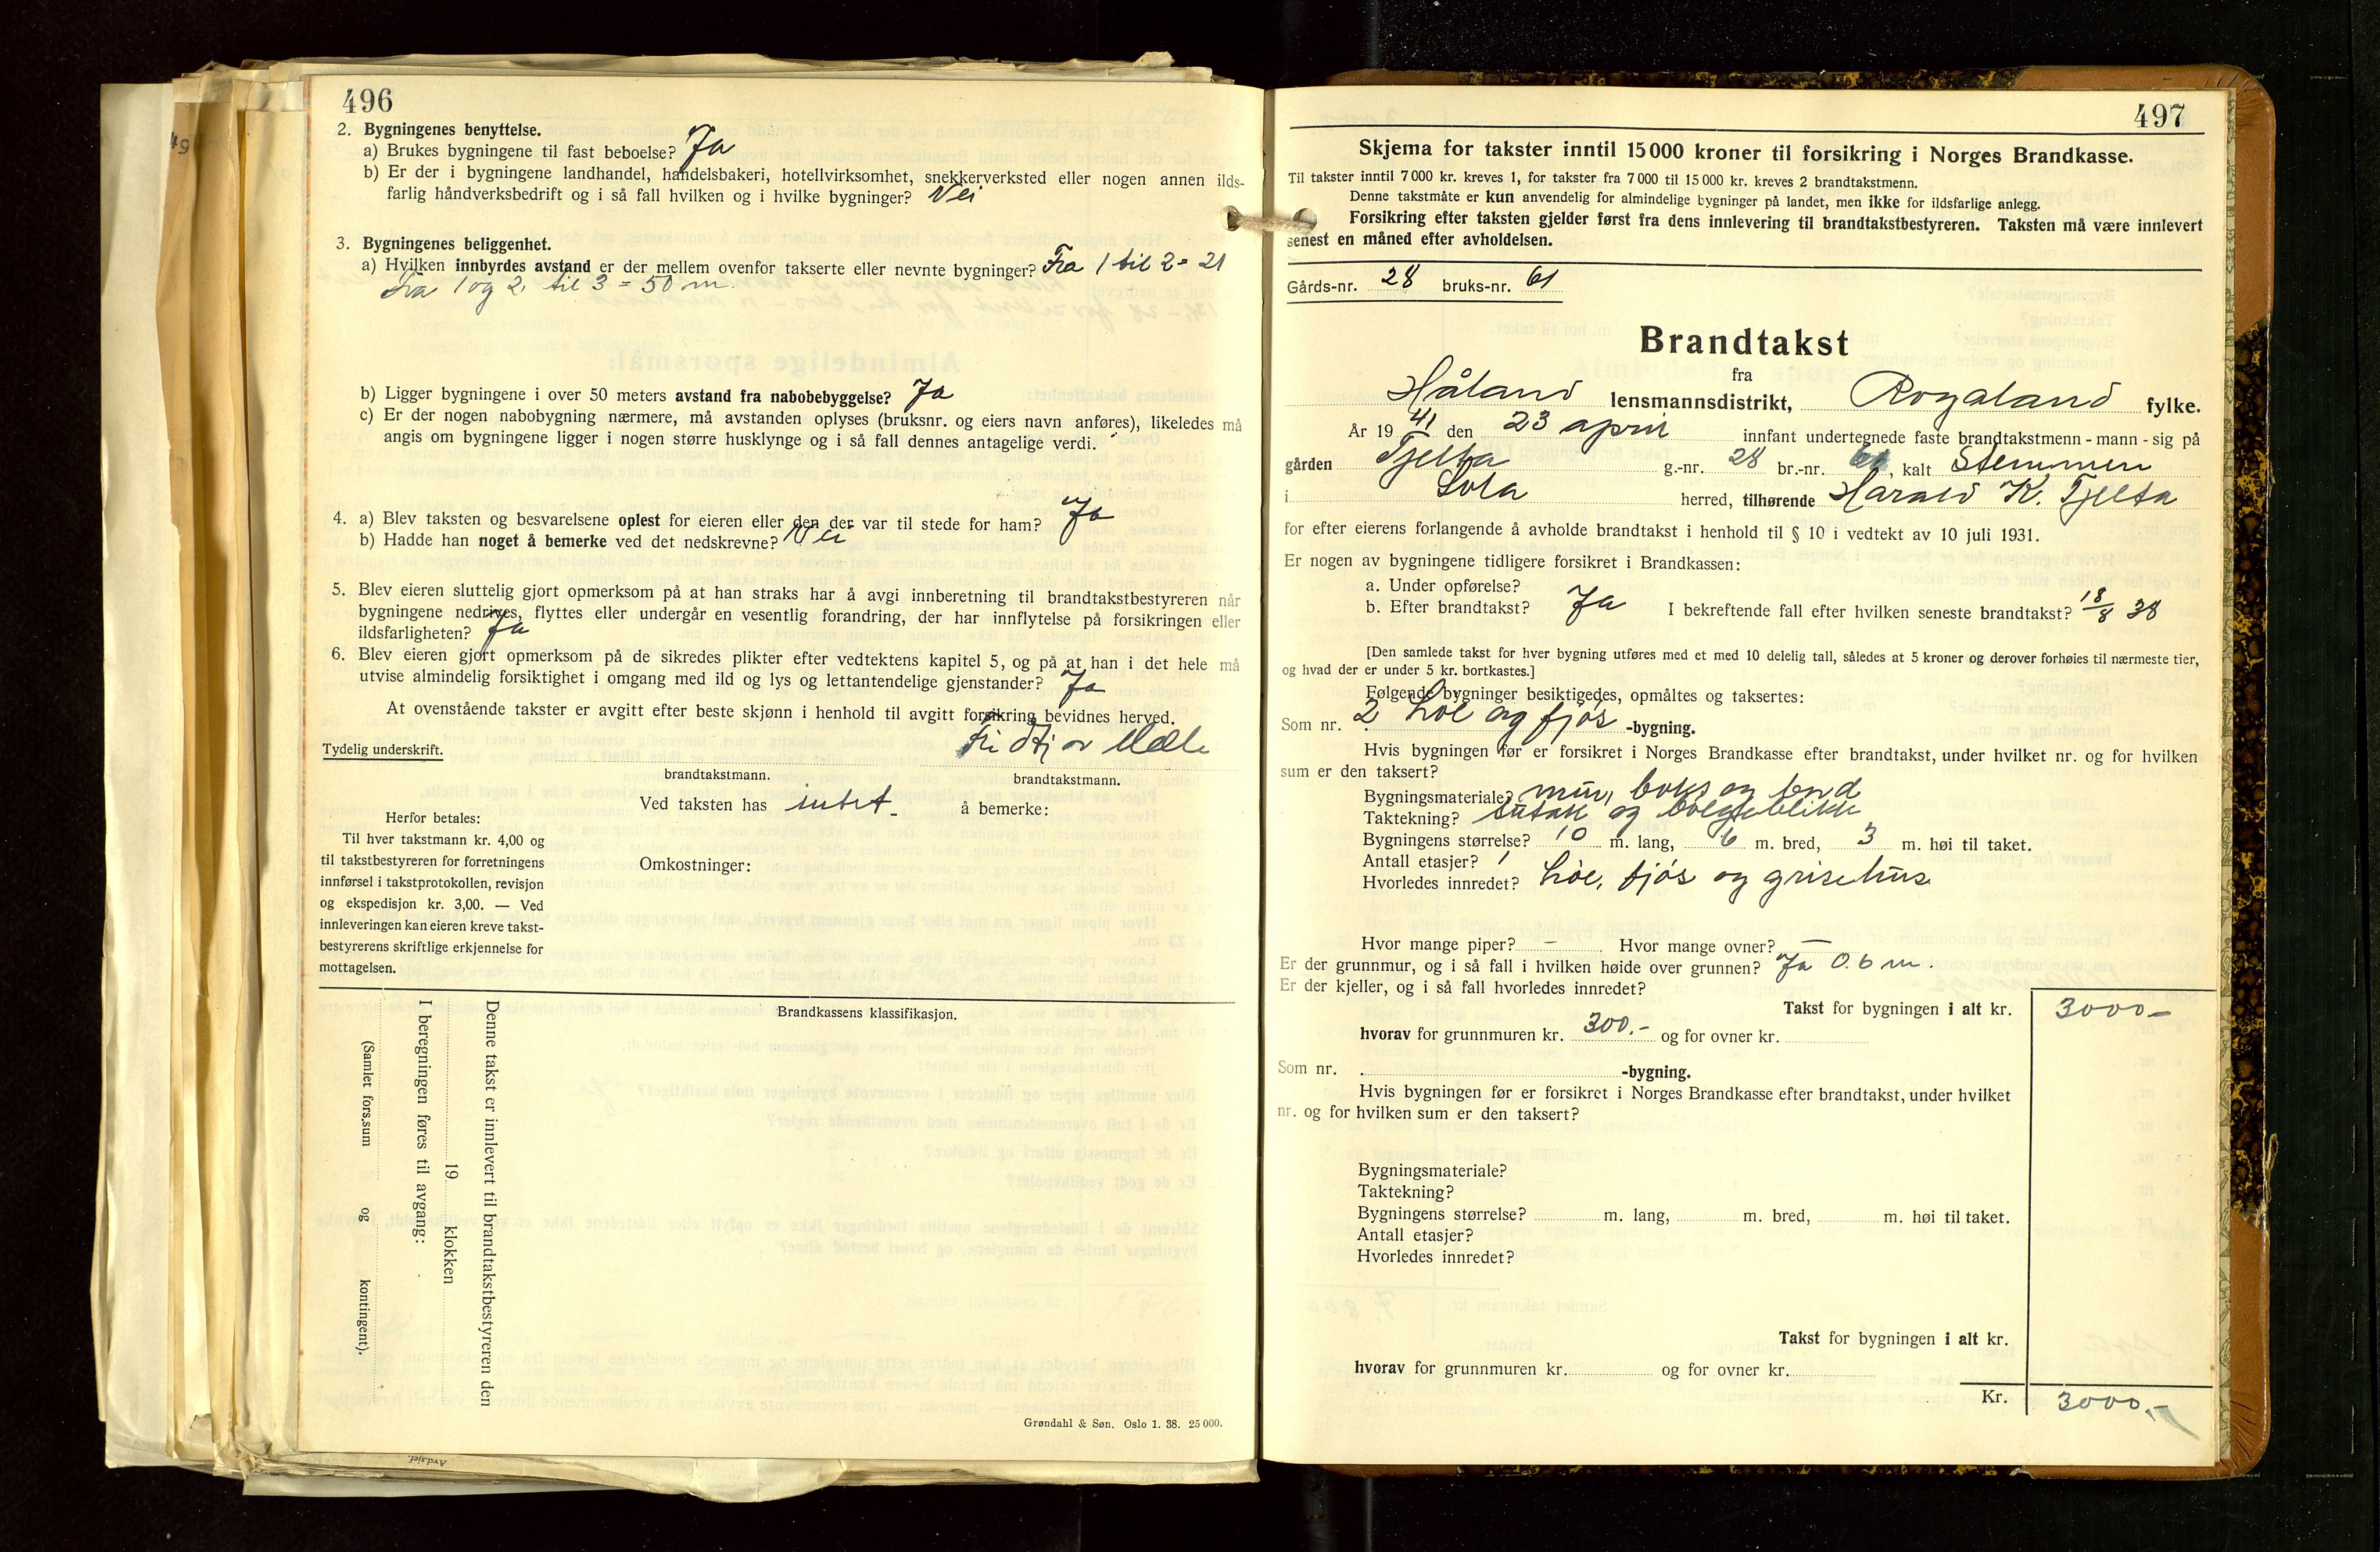 496
2. Bygningenes benyttelse.
a) Brukes bygningene til fast beboelse? Ja
b) Er der i bygningene landhandel, handelsbakeri, hotellvirksomhet, snekkerverksted eller nogen annen ilds-
farlig håndverksbedrift og i så fall hvilken og i hvilke bygninger? Nei
3. Bygningenes beliggenhet.
a) Hvilken innbyrdes avstand er der mellem ovenfor takserte eller nevnte bygninger? Fra 1 til 2 = 21
Fra 1 og 2 til 3 = 50 m.
b) Ligger bygningene i over 50 meters avstand fra nabobebyggelse? Ja
c) Er der nogen nabobygning nærmere, må avstanden oplyses (bruksnr. og eiers navn anføres), likeledes må
angis om bygningene ligger i nogen større husklynge og i så fall dennes antagelige verdi.
4. a) Blev taksten og besvarelsene oplest for eieren eller den der var til stede for ham? Ja
b) Hadde han noget å bemerke ved det nedskrevne? Nei
5. Blev eieren sluttelig gjort opmerksom på at han straks har å avgi innberetning til brandtakstbestyreren når
bygningene nedrives, flyttes eller undergår en vesentlig forandring, der har innflytelse på forsikringen eller
ildsfarligheten? Ja
6. Blev eieren gjort opmerksom på de sikredes plikter efter vedtektens kapitel 5, og på at han i det hele må
utvise almindelig forsiktighet i omgang med ild og lys og lettantendelige gjenstander? Ja
At ovenstående takster er avgitt efter beste skjønn i henhold til avgitt forsikring bevidnes herved.
Tydelig underskrift.
Fridtjov Mæle
brandtakstmann. brandtakstmann.
Ved taksten has intet - å bemerke:
Herfor betales:
Til hver takstmann kr. 4,00 og
til takstbestyreren for forretningens
innførsel i takstprotokollen, revisjon
og ekspedisjon kr. 3,00. — Ved
innleveringen kan eieren kreve takst-
bestyrerens skriftlige erkjennelse for
mottagelsen.
Omkostninger:
Brandkassens klassifikasjon.
Denne takst er innlevert til brandtakstbestyreren den
19 klokken
I beregningen føres til avgang:
(Samlet fors.sum og kontingent).
Grøndahl & Søn. Oslo 1. 38. 25 000.
Avdsjef.
497
Skjema for takster inntil 15 000 kroner til forsikring i Norges Brandkasse.
Til takster inntil 7 000 kr. kreves 1, for takster fra 7 000 til 15 000 kr. kreves 2 brandtakstmenn.
Denne takstmåte er kun anvendelig for almindelige bygninger på landet, men ikke for ildsfarlige anlegg.
Forsikring efter taksten gjelder først fra dens innlevering til brandtakstbestyreren. Taksten må være innlevert
senest en måned efter avholdelsen.
Gårds-nr. 28 bruks-nr. 61
Brandtakst
fra
Håland lensmannsdistrikt, Rogaland fylke.
År 1941 den 23 april innfant undertegnede faste brandtakstmenn - mann - sig på
gården Tjelta g.-nr. 28 br.-nr. 61, kalt Stemmen
i Sola herred, tilhørende Harald K. Tjelta
for efter eierens forlangende å avholde brandtakst i henhold til § 10 i vedtekt av 10 juli 1931.
Er nogen av bygningene tidligere forsikret i Brandkassen:
a. Under opførelse?
b. Efter brandtakst? Ja I bekreftende fall efter hvilken seneste brandtakst? 18/8 38
[Den samlede takst for hver bygning utføres med et med 10 delelig tall, således at 5 kroner og derover forhøies til nærmeste tier,
og hvad der er under 5 kr. bortkastes.]
Følgende bygninger besiktigedes, opmåltes og taksertes:
Som nr. 2 Løe og fjøs -bygning.
Hvis bygningen før er forsikret i Norges Brandkasse efter brandtakst, under hvilket nr. og for hvilken
sum er den taksert?
Bygningsmateriale? mur, boks og bord
Taktekning? sutak og bølgeblikk
Bygningens størrelse? 10 m. lang, 6 m. bred, 3 m. høi til taket.
Antall etasjer? 1
Hvorledes innredet? Løe, fjøs og grisehus
Hvor mange piper? — Hvor mange ovner? —
Er der grunnmur, og i så fall i hvilken høide over grunnen? Ja 0.6 m.
Er der kjeller, og i så fall hvorledes innredet?
Takst for bygningen i alt kr. 3000 -
hvorav for grunnmuren kr. 300.- og for ovner kr.
Som nr. -bygning.
Hvis bygningen før er forsikret i Norges Brandkasse efter brandtakst, under hvilket
nr. og for hvilken sum er den taksert?
Bygningsmateriale?
Taktekning?
Bygningens størrelse? m. lang, m. bred, m. høi til taket.
Antall etasjer?
Hvorledes innredet?
Takst for bygningen i alt kr.
hvorav for grunnmuren kr. og for ovner kr.
Kr. 3000,-